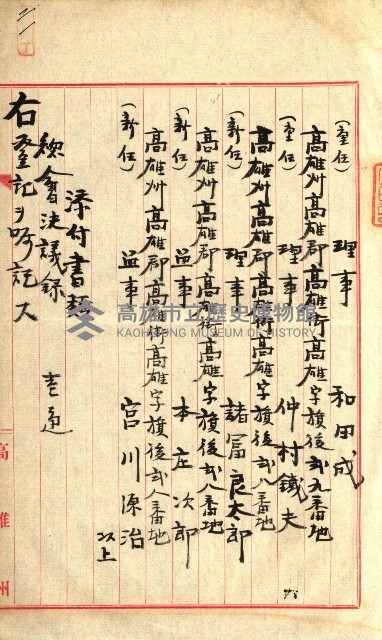 (重任) 理事 和田成
高雄州高雄郡高雄街高雄字旗後弍九番地
(重任) 理事 仲村鐵夫
高雄州高雄郡高雄街高雄字旗後弍八番地
(新任) 理事 諸冨良太郎
高雄州高雄郡高雄街高雄字旗後弍八番地
(新任) 監事 本庄次郎
高雄州高雄郡高雄街高雄字旗後弍八番地
(新任) 監事 宮川源治
以上
添付書類
總會決議錄 壹通
右登記ヲ
高雄州
高雄市立歷史博物館
KAOHSIUNG MUSEUM OF HISTORY